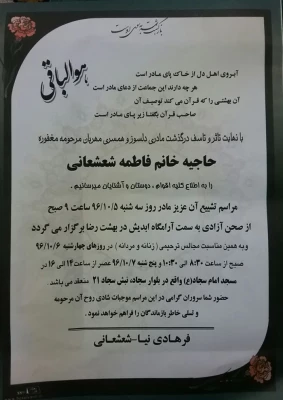 هوالباقی
آبروی اهل دل از خاک پای مادر است
هر چه دارند این جماعت از دعای مادر است
آن بهشتی را که قرآن می کند توصیف آن
صاحب قرآن بگفتا زیر پای مادر است
با نهایت تاثر و تاسف درگذشت مادری دلسوز و همسری مهربان مرحومه مغفوره
حاجیه خانم فاطمه شعشعانی
را به اطلاع کلیه اقوام ، دوستان و آشنایان میرسانیم .
مراسم تشییع آن عزیز مادر روز سه شنبه ۹۶/۱۰/۵ ساعت ۹ صبح
از صحن آزادی به سمت آرامگاه ابدیش در بهشت رضا برگزار می گردد
و به همین مناسبت مجالس ترحیمی (زنانه و مردانه) در روزهای چهارشنبه ۹۶/۱۰/۶
صبح از ساعت ۸:۳۰ الی ۱۰:۳۰ و پنج شنبه ۹۶/۱۰/۷ عصر از ساعت ۱۴ الی ۱۶ در
مسجد امام سجاد(ع) واقع در بلوار سجاد، نبش سجاد ۲۱ منعقد می باشد
حضور شما سروران گرامی در این مراسم موجبات شادی روح آن مرحومه
و تسلی خاطر بازماندگان را فراهم خواهد نمود .
فرهادی نیا-شعشعانی